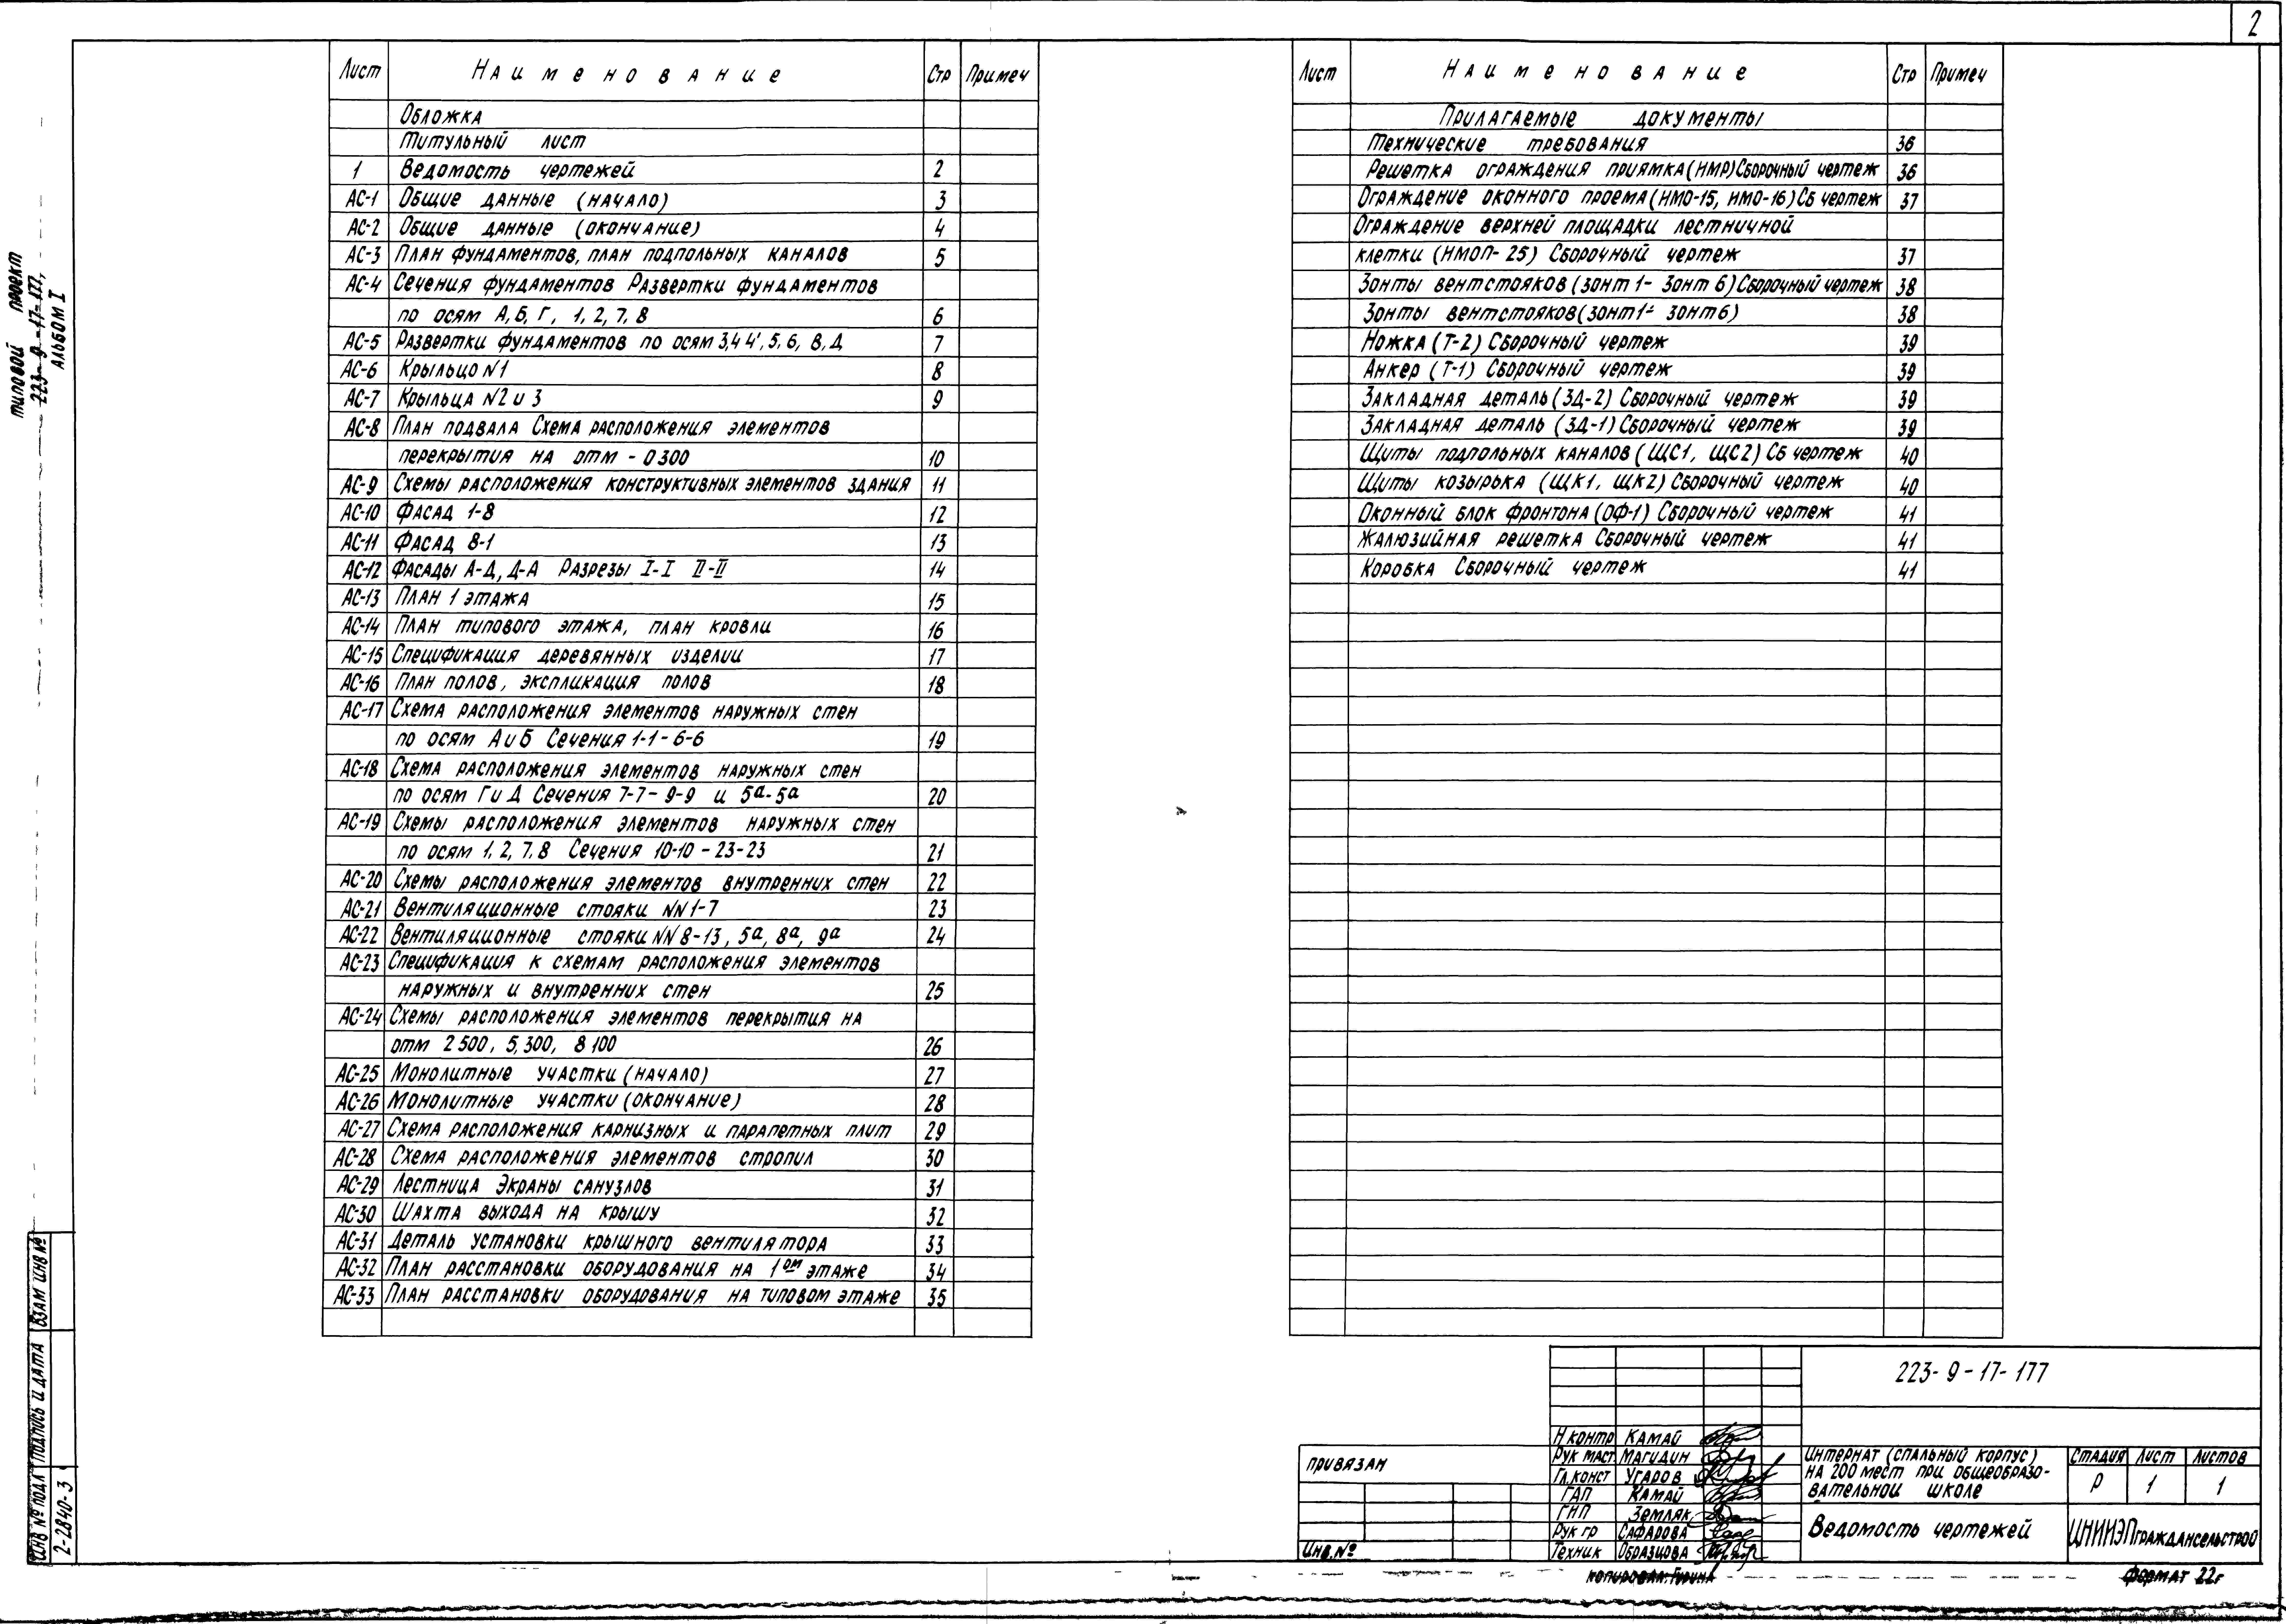 2
типовой проект
223-9-17-177,
АЛЬБОМ I
Лист Наименование Стр Примеч
Обложка
Титульный лист
1 Ведомость чертежей 2
АС-1 Общие данные (начало) 3
АС-2 Общие данные (окончание) 4
АС-3 План фундаментов, план подпольных каналов 5
АС-4 Сечения фундаментов Развертки фундаментов
по осям А, Б, Г, 1, 2, 7, 8 6
АС-5 Развертки фундаментов по осям 3,4 4', 5, 6, В, Д 7
АС-6 Крыльцо N1 8
АС-7 Крыльца N2 и 3 9
АС-8 План подвала Схема расположения элементов
перекрытия на отм - 0 300 10
АС-9 Схемы расположения конструктивных элементов здания 11
АС-10 Фасад 1-8 12
АС-11 Фасад 8-1 13
АС-12 Фасады А-Д, Д-А Разрезы I-I II-II 14
АС-13 План 1 этажа 15
АС-14 План типового этажа, план кровли 16
АС-15 Спецификация деревянных изделии 17
АС-16 План полов, экспликация полов 18
АС-17 Схема расположения элементов наружных стен
по осям А и Б Сечения 1-1 - 6-6 19
АС-18 Схема расположения элементов наружных стен
по осям Г и Д Сечения 7-7 - 9-9 и 5а-5а 20
АС-19 Схемы расположения элементов наружных стен
по осям 1, 2, 7, 8 Сечения 10-10 - 23-23 21
АС-20 Схемы расположения элементов внутренних стен 22
АС-21 Вентиляционные стояки NN 1-7 23
АС-22 Вентиляционные стояки NN 8-13, 5а, 8а, 9а 24
АС-23 Спецификация к схемам расположения элементов
наружных и внутренних стен 25
АС-24 Схемы расположения элементов перекрытия на
отм 2 500, 5,300, 8 100 26
АС-25 Монолитные участки (начало) 27
АС-26 Монолитные участки (окончание) 28
АС-27 Схема расположения карнизных и парапетных плит 29
АС-28 Схема расположения элементов стропил 30
АС-29 Лестница Экраны санузлов 31
АС-30 Шахта выхода на крышу 32
АС-31 Деталь установки крышного вентилятора 33
АС-32 План расстановки оборудования на 1ом этаже 34
АС-33 План расстановки оборудования на типовом этаже 35
Лист Наименование Стр Примеч
Прилагаемые документы
Технические требования 36
Решетка ограждения приямка (НМР) Сборочный чертеж 36
Ограждение оконного проема (НМО-15, НМО-16) Сб чертеж 37
Ограждение верхней площадки лестничной
клетки (НМОП-25) Сборочный чертеж 37
Зонты вентстояков (зонт 1 - Зонт 6) Сборочный чертеж 38
Зонты вентстояков (зонт 1 - зонт 6) 38
Ножка (Т-2) Сборочный чертеж 39
Анкер (Т-1) Сборочный чертеж 39
Закладная деталь (ЗД-2) Сборочный чертеж 39
Закладная деталь (ЗД-1) Сборочный чертеж 39
Щиты подпольных каналов (ЩС1, ЩС2) Сб чертеж 40
Щиты козырька (ЩК1, ЩК2) Сборочный чертеж 40
Оконный блок фронтона (ОФ-1) Сборочный чертеж 41
Жалюзийная решетка Сборочный чертеж 41
Коробка Сборочный чертеж 41
ИНВ № подл Подпись и дата Взам инв №
2-2840-3
привязан
Инв. №
223-9-17-177
Н контр Камай
Рук маст Магидин
Гл. конст Угаров
ГАП Камай
ГИП Земляк
Рук гр Сафарова
Техник Образцова
Интернат (спальный корпус)
на 200 мест при общеобразо-
вательной школе
Стадия Лист Листов
Р 1 1
Ведомость чертежей
ЦНИИЭПграждансельстрой
Копировал: Гурина
Формат 22г